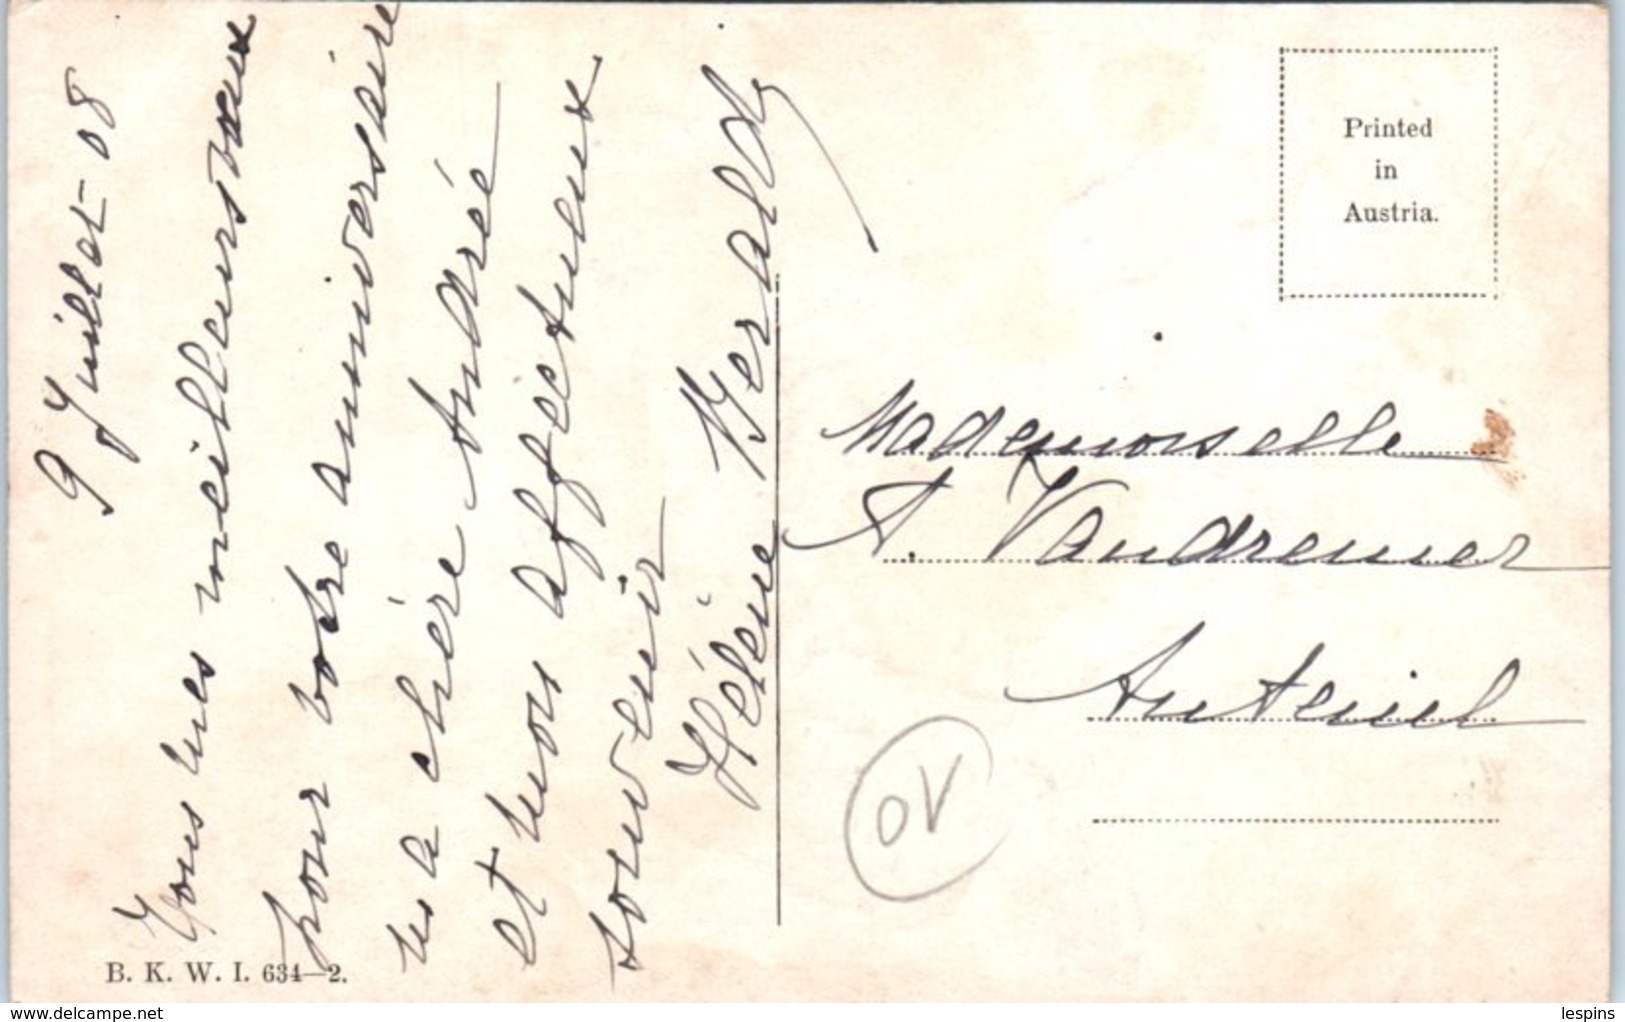 9 Juillet-08
Tous mes meilleurs vœux
pour votre anniversaire
ma chère Andrée
et mon affectueux
souvenir
Hélène Berald
Printed
in
Austria.
Mademoiselle
A. Vaudremer
Auteuil
OV
B. K. W. I. 634—2.
www.delcampe.net
lespins